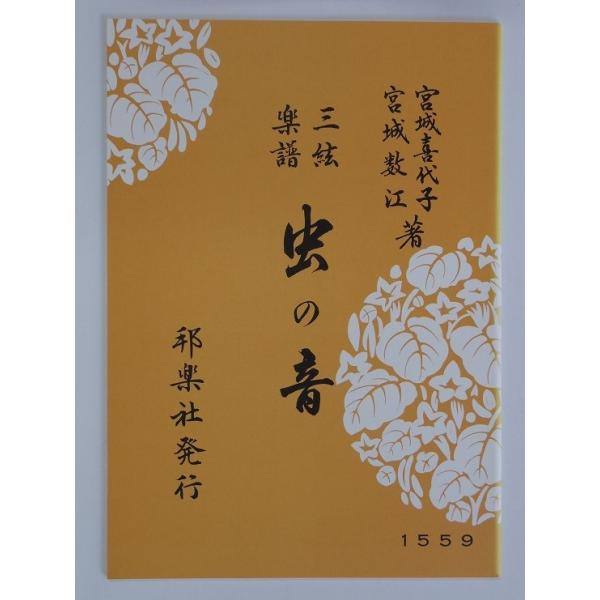 宮城喜代子
宮城数江 著
三絃
楽譜
虫の音
邦楽社発行
1559